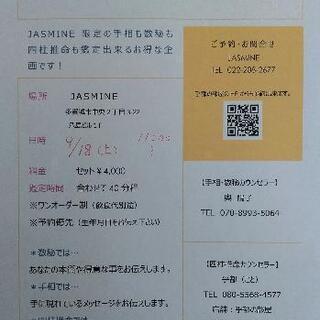 JASMINE 限定の手相も数秘も
四柱推命も鑑定出来るお得な企
画です！
場所 JASMINE
日時 9/18(土) 11:00
料金 セット￥4,000
鑑定時間 合わせて40分程
※ワンオーダー制（飲食代別途）
※予約優先（生年月日をお伝え下さい）
＊数秘では…
あなたの本質や得意な事をお伝えします。
＊手相では…
手に現れているメッセージをお伝えします。
ご予約・お問合せ
JASMINE
TEL 022-206-2677
【手相・数秘カウンセラー】
TEL 070-8993-5064
【四柱推命カウンセラー】
TEL 080-5568-4577